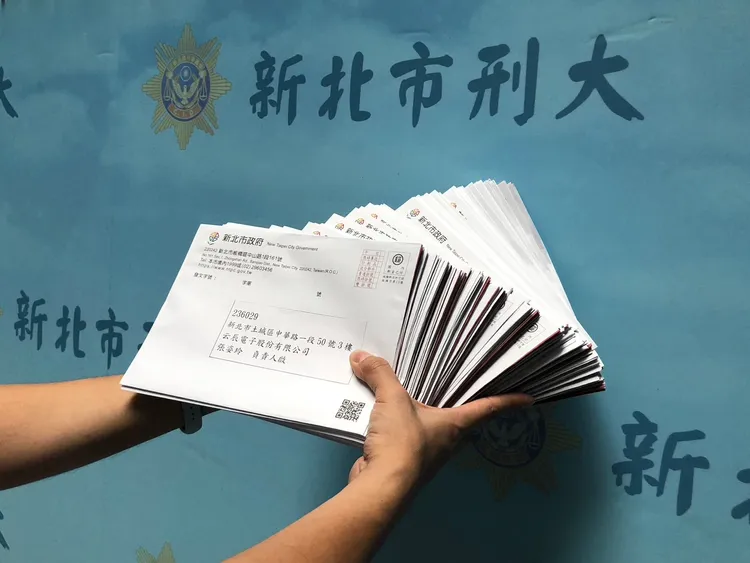 新北市刑大
新北市政府 New Taipei City Government
220242 新北市板橋區中山路1段161號
No.161, Sec.1, Zhongshan Rd., Banqiao Dist., New Taipei City, 220242, Taiwan (R.O.C.)
發文字號： 字第 號
236029
新北市土城區中華路一段50號3樓
云辰電子股份有限公司
張姿玲 負責人啟
新北市
新